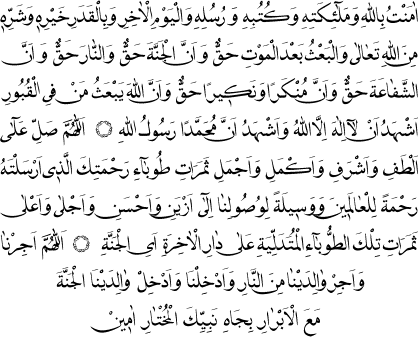 اٰمَنْتُ بِاللّٰهِ وَمَلٰٓئِكَتِهٖ وَكُتُبِهٖ وَرُسُلِهٖ وَالْيَوْمِ الْاٰخِرِ وَبِالْقَدَرِ خَيْرِهٖ وَشَرِّهٖ
مِنَ اللّٰهِ تَعَالٰى وَالْبَعْثُ بَعْدَ الْمَوْتِ حَقٌّ وَاَنَّ الْجَنَّةَ حَقٌّ وَالنَّارَ حَقٌّ وَاَنَّ
الشَّفَاعَةَ حَقٌّ وَاَنَّ مُنْكَرًا وَنَكِيرًا حَقٌّ وَاَنَّ اللّٰهَ يَبْعَثُ مَنْ فِى الْقُبُورِ
اَشْهَدُ اَنْ لَٓا اِلٰهَ اِلَّا اللّٰهُ وَاَشْهَدُ اَنَّ مُحَمَّدًا رَسُولُ اللّٰهِ ۞ اَللّٰهُمَّ صَلِّ عَلٰٓى
اَلْطَفِ وَاَشْرَفِ وَاَكْمَلِ وَاَجْمَلِ ثَمَرَاتِ طُوبَٓاءِ رَحْمَتِكَ الَّذٖى اَرْسَلْتَهُ
رَحْمَةً لِلْعَالَمٖينَ وَوَسٖيلَةً لِوُصُولِنَا اِلٰٓى اَزْيَنِ وَاَحْسَنِ وَاَجْلٰى وَاَعْلٰى
ثَمَرَاتِ تِلْكَ الطُّوبَٓاءِ الْمُتَدَلِّيَةِ عَلٰى دَارِ الْاٰخِرَةِ اَىِ الْجَنَّةِ ۞ اَللّٰهُمَّ اَجِرْنَا
وَاَجِرْ وَالِدَيْنَا مِنَ النَّارِ وَاَدْخِلْنَا وَاَدْخِلْ وَالِدَيْنَا الْجَنَّةَ
مَعَ الْاَبْرَارِ بِجَاهِ نَبِيِّكَ الْمُخْتَارِ اٰمٖينَ